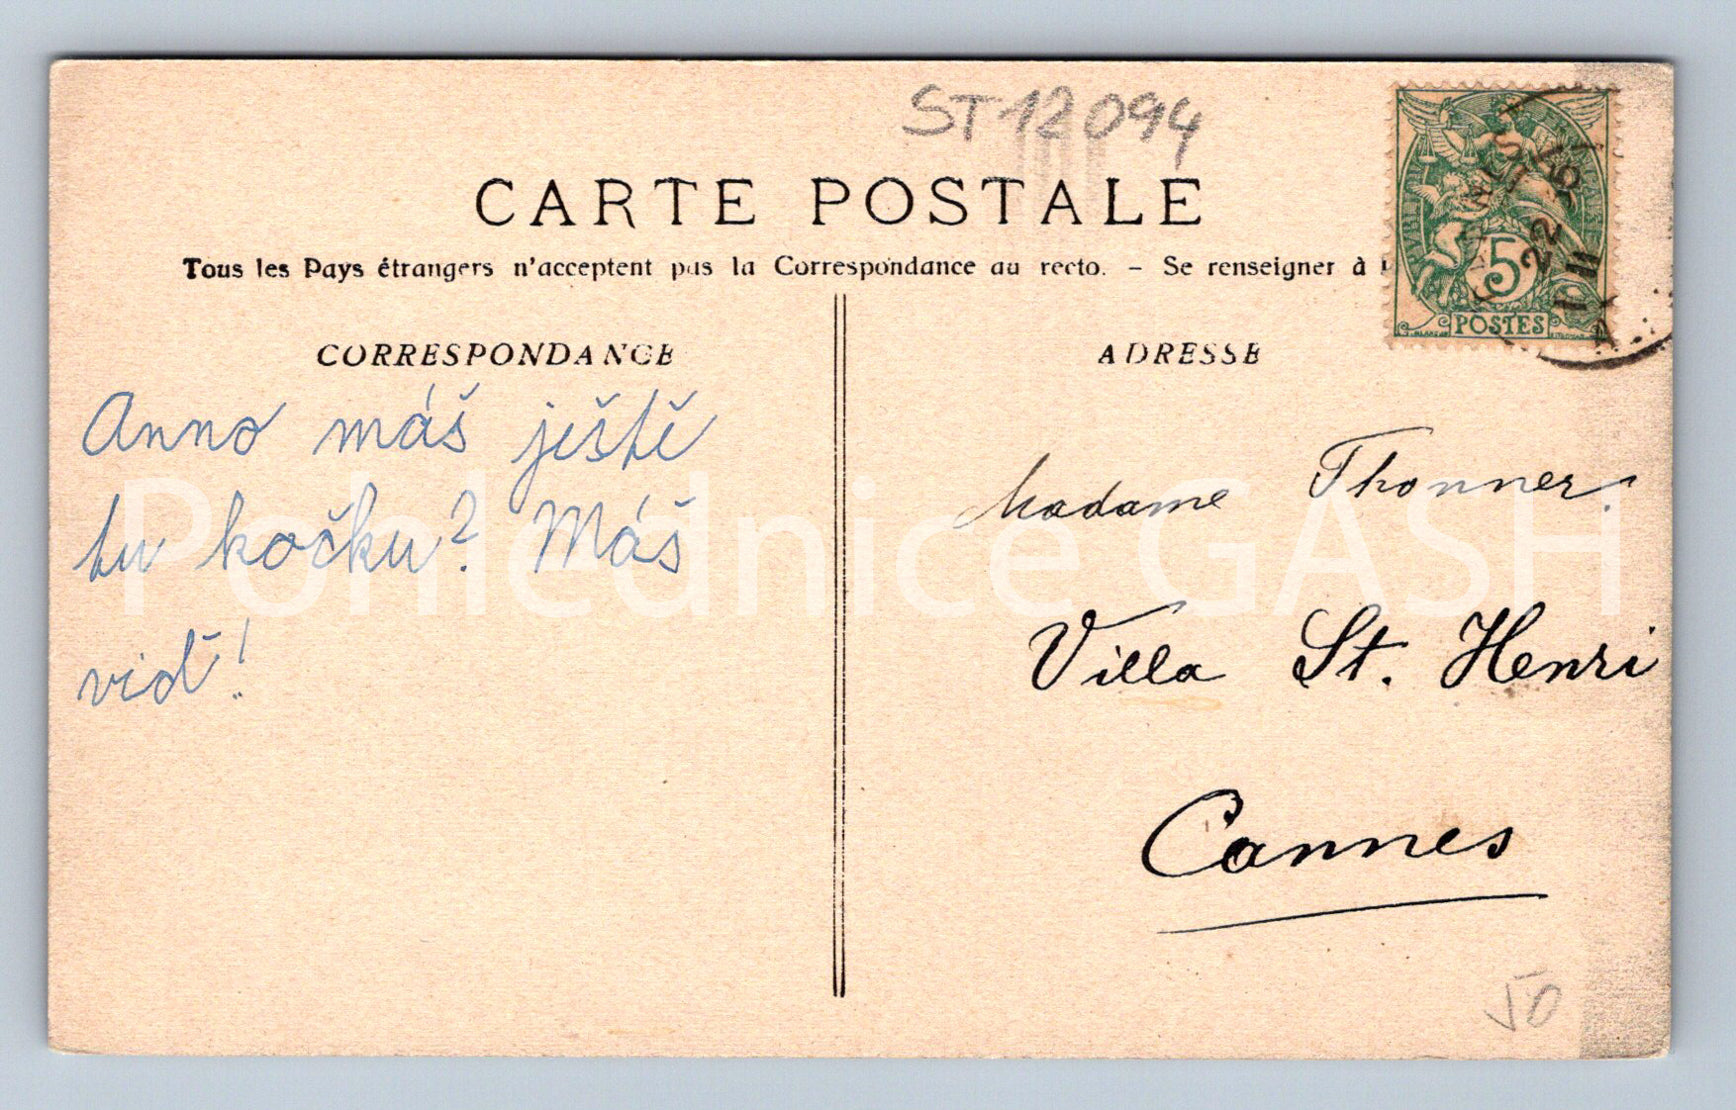 ST12094
CARTE POSTALE
Tous les Pays étrangers n'acceptent pas la Correspondance au recto. – Se renseigner à
CORRESPONDANCE
ADRESSE
5
POSTES
22
Anno máš ještě
tu kočku? Máš
viď!
Madame Thonner.
Villa St. Henri
Cannes
50
Pohlednice GASH